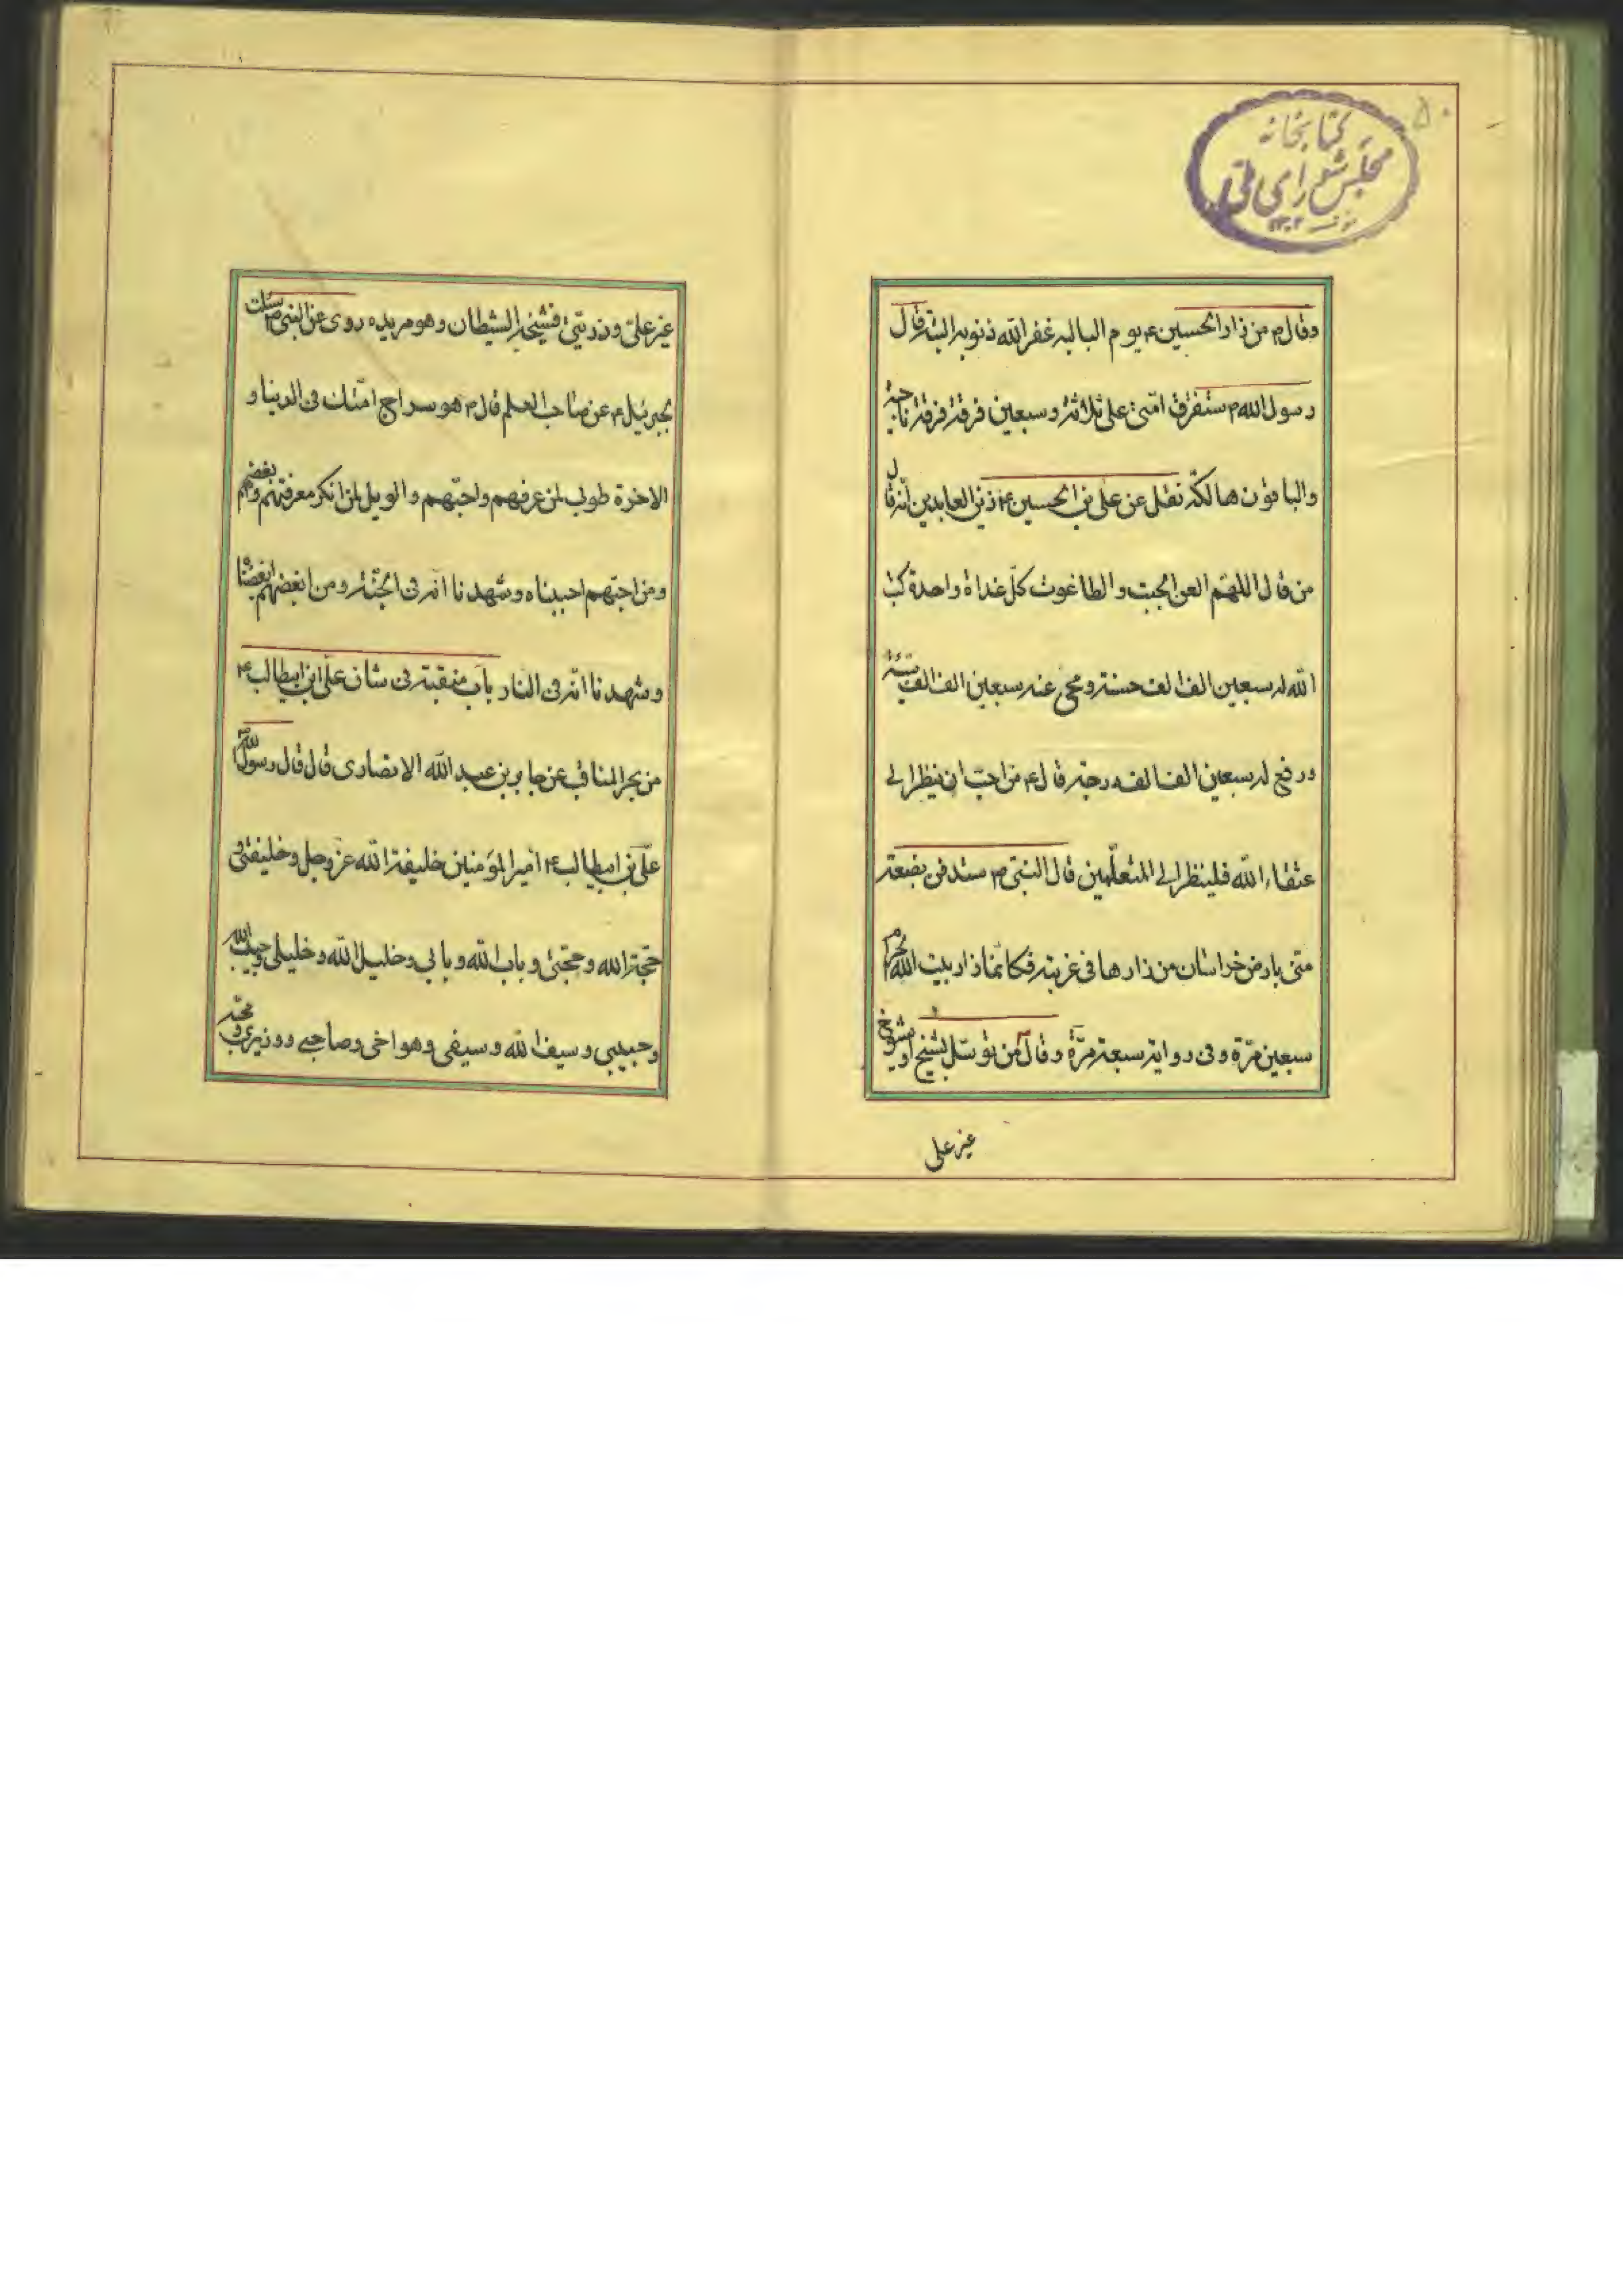 ۵۰
کتابخانه
مجلس شورای ملی
وقال م من زار الحسین ع یوم البالیه غفر الله ذنوبه البتة قال
رسول الله م ستفرق امتی علی ثلاثة وسبعین فرقة فرقة ناجیة
والباقون هالکة نقل عن علی بن الحسین ع زین العابدین انه قال
من قال اللهم العن الجبت والطاغوت کل غداة واحدة کتب
الله له سبعین الف الف حسنة ومحی عنه سبعین الف الف سیئة
ورفع له سبعین الف الف درجة قال ع من احب ان ینظر الی
عتقاء الله فلینظر الی المتعلمین قال النبی م ستدفن بضعة
منی بارض خراسان من زارها فی غربته فکانما زار بیت الله الحرام
سبعین مرة وفی روایة سبعة مرة وقال من توسل بشیخ او شیوخ
غیر علی
غیر علی وذریتی فشیخه الشیطان وهو مریده روی عن النبی م سئلت
جبرئیل ع عن صاحب العلم قال م هو سراج امتک فی الدنیا و
الاخرة طوبی لمن عرفهم واحبهم والویل لمن انکر معرفتهم وبغضهم
ومن احبهم احببناه وشهدنا انه فی الجنة ومن ابغضهم ابغضنا
وشهدنا انه فی النار باب منقبة فی شان علی ابن ابیطالب ع
من بحر المناقب عن جابر بن عبد الله الانصاری قال قال رسول الله
علی بن ابیطالب ع امیر المؤمنین خلیفة الله عز وجل وخلیفتی و
حجة الله وحجتی وباب الله وبابی وخلیل الله وخلیلی وحبیب الله
وحبیبی وسیف الله وسیفی وهو اخی وصاحبی ووزیری